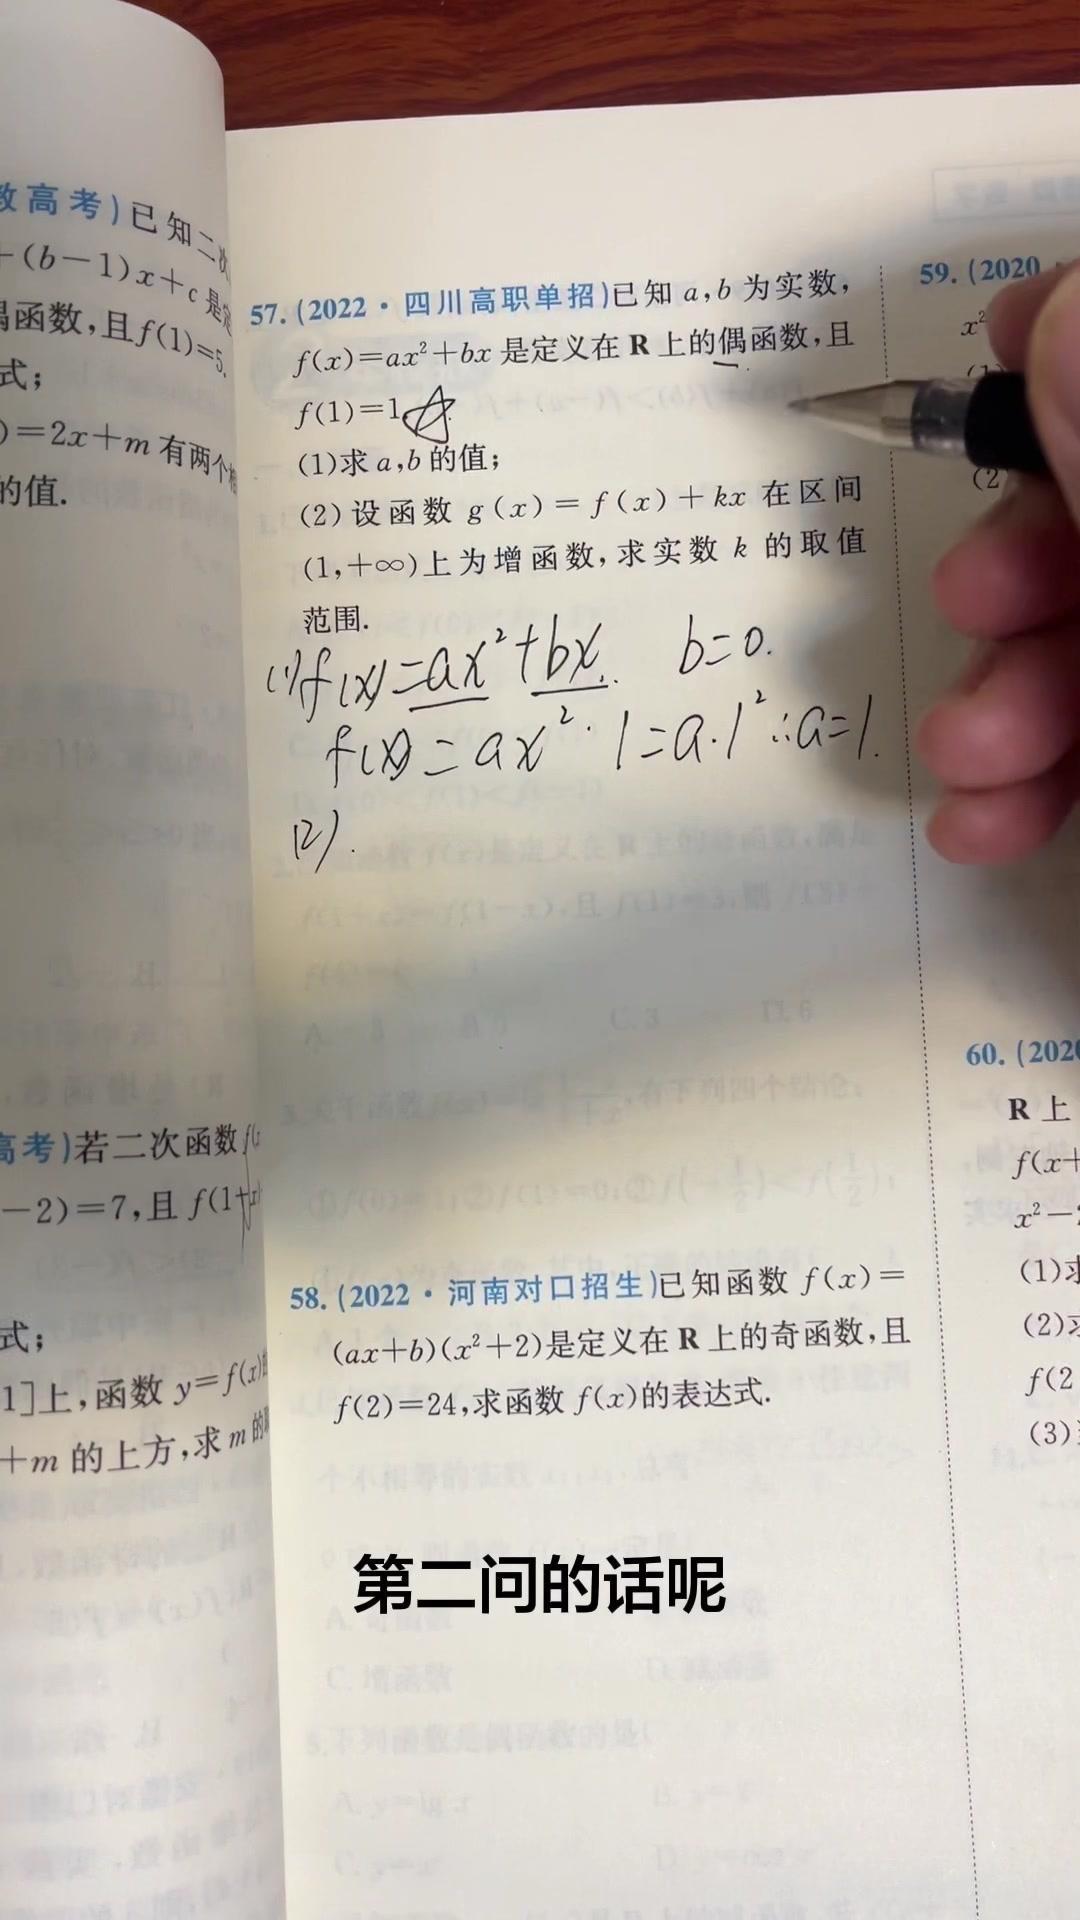 数高考)已知二次
+(b-1)x+c是定
偶函数,且f(1)=5.
式;
)=2x+m有两个相
的值.
高考)若二次函数f(x
-2)=7,且f(1+x)
式;
1]上,函数y=f(x)的
+m的上方,求m的取
57.(2022·四川高职单招)已知a,b为实数,
f(x)=ax²+bx是定义在R上的偶函数,且
f(1)=1
(1)求a,b的值;
(2)设函数g(x)=f(x)+kx在区间
(1,+∞)上为增函数,求实数k的取值
范围.
(1)f(x)=ax²+bx. b=0.
f(x)=ax². 1=a·1² ∴a=1.
(2).
58.(2022·河南对口招生)已知函数f(x)=
(ax+b)(x²+2)是定义在R上的奇函数,且
f(2)=24,求函数f(x)的表达式.
59.(2020
x²
(1)
(2
60.(2020
R上
f(x+
x²-2
(1)求
(2)求
f(2
(3)
第二问的话呢